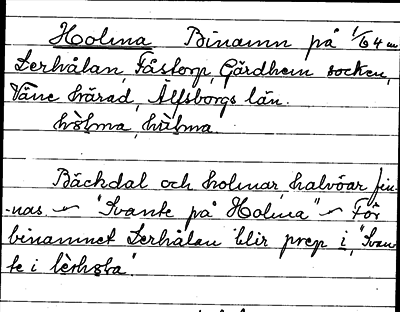 Holma Binamn på 1/64 m
Lerhålan, Fåstorp, Gärdhem socken,
Väne härad, Älfsborgs län.
hòlma, hùlma.
Bäckdal och holmar, halvöar fin-
-nas ~ "Svante på Holma" ~ För
binamnet Lerhålan blir prep i, "Svan-
te i